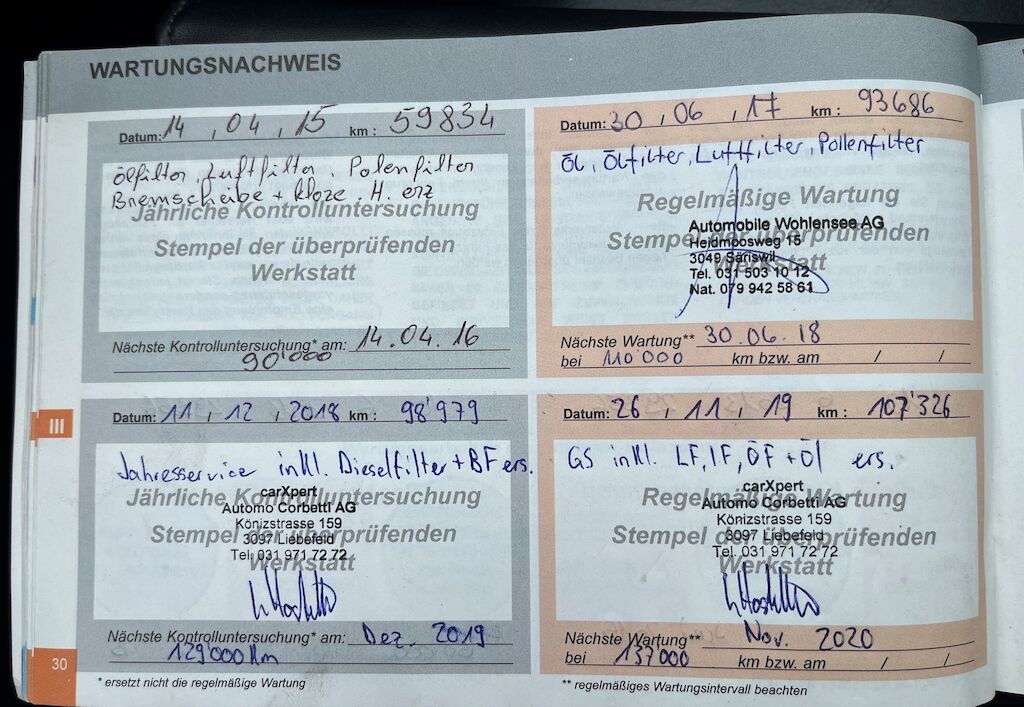 WARTUNGSNACHWEIS
Datum: 14 , 04 , 15 km : 59834
Ölfilter, Luftfilter, Polenfilter
Bremscheibe + kloze. H. erz
Jährliche Kontrolluntersuchung
Stempel der überprüfenden
Werkstatt
Nächste Kontrolluntersuchung* am: 14.04.16
90'000
Datum: 30 , 06 , 17 km : 93686
Öl, Ölfilter, Luftfilter, Pollenfilter
Regelmäßige Wartung
Stempel der überprüfenden
Werkstatt
Automobile Wohlensee AG
Heidmoosweg 15
3049 Säriswil
Tel. 031 503 10 12
Nat. 079 942 58 61
Nächste Wartung** 30.06.18
bei 110'000 km bzw. am / /
Datum: 11 , 12 , 2018 km : 98'979
Jahresservice inkl. Dieselfilter + BF ers.
Jährliche Kontrolluntersuchung
Stempel der überprüfenden
Werkstatt
carXpert
Automo Corbetti AG
Könizstrasse 159
3097 Liebefeld
Tel. 031 971 72 72
Nächste Kontrolluntersuchung* am: Dez. 2019
129'000 km
Datum: 26 , 11 , 19 km : 107'326
GS inkl. LF, IF, ÖF + Öl ers.
Regelmäßige Wartung
Stempel der überprüfenden
Werkstatt
carXpert
Automo Corbetti AG
Könizstrasse 159
3097 Liebefeld
Tel. 031 971 72 72
Nächste Wartung** Nov. 2020
bei 137'000 km bzw. am / /
III
30
* ersetzt nicht die regelmäßige Wartung
** regelmäßiges Wartungsintervall beachten